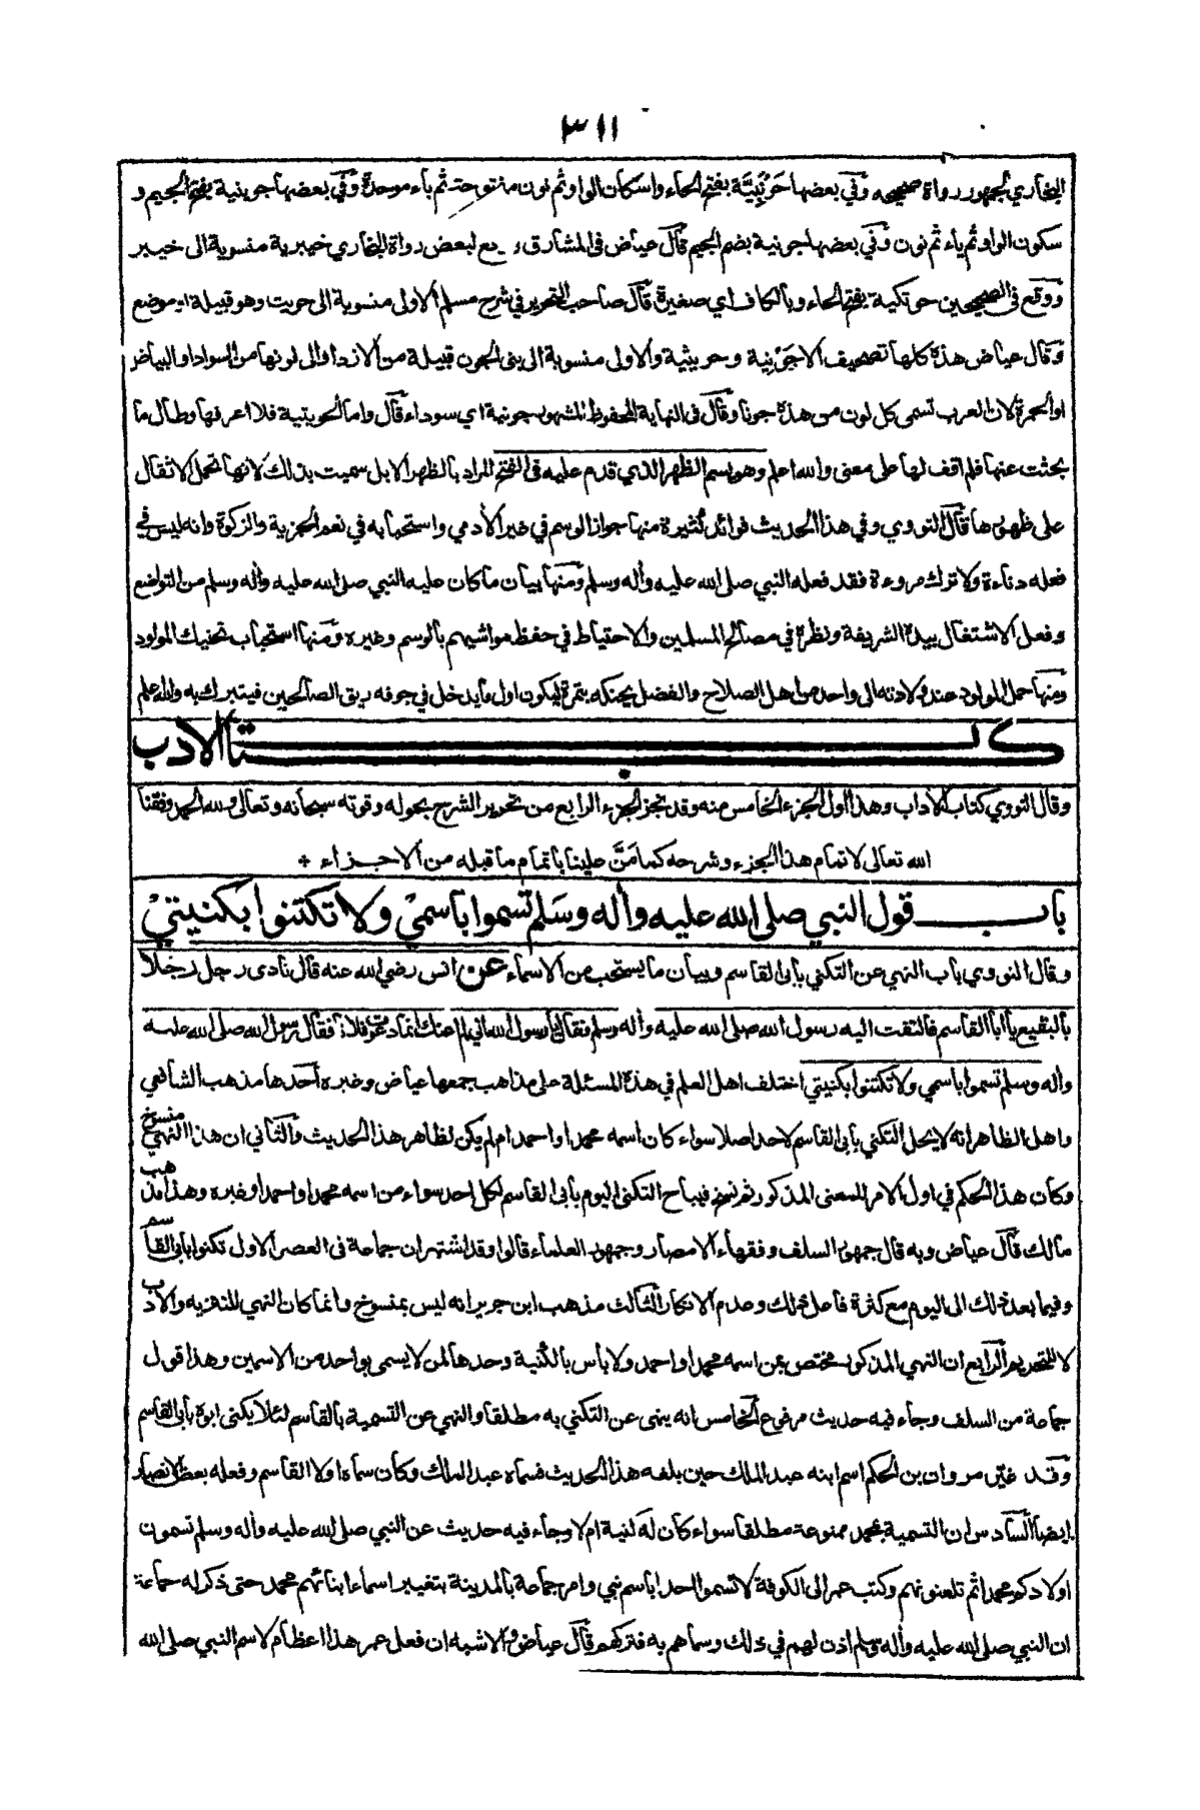 ٣١١
البخاري لجمهور رواة صحيحه وفي بعضها حَوْنَبِيَّة بفتح الحاء واسكان الواو ثم نون مفتوحة ثم باء موحدة وفي بعضها جوينية بفتح الجيم و
سكون الواو ثم ياء ثم نون وفي بعضها جونية بضم الجيم قال عياض في المشارق ووقع لبعض رواة البخاري خيبرية منسوبة الى خيبر
ووقع في الصحيحين حوتكية بفتح الحاء وبالكاف اي صغيرة قال صاحب التحرير في شرح مسلم الاولى منسوبة الى حويت وهو قبيلة او موضع
وقال عياض هذه كلها تصحيف الا جَوْنِية وحريثية والاولى منسوبة الى بنى الجون قبيلة من الازد او الى لونها من السواد او البياض
او الحمرة لان العرب تسمى كل لون من هذه جونا وقال في النهاية المحفوظ المشهور جونية اي سوداء قال واما الحويتية فلا اعرفها وطال ما
بحثت عنها فلم اقف لها على معنى والله اعلم وهو يسم الظهر الذي قدم عليه في الفتح المراد بالظهر الابل سميت بذلك لانها تحمل الاثقال
على ظهورها قال النووي وفي هذا الحديث فوائد كثيرة منها جواز الوسم في غير الأدمي واستحبابه في نعم الجزية والزكوة وانه ليس في
فعله دناءة ولا ترك مروءة فقد فعله النبي صلى الله عليه وأله وسلم ومنها بيان ما كان عليه النبي صلى الله عليه وأله وسلم من التواضع
وفعل الاشتغال بيده الشريفة ونظره في مصالح المسلمين والاحتياط في حفظ مواشيهم بالوسم وغيره ومنها استحباب تحنيك المولود
ومنها حمل المولود عند ولادته الى واحد من اهل الصلاح والفضل يحنكه بتمرة ليكون اول ما يدخل في جوفه ريق الصالحين فيتبرك به والله اعلم
كتاب الادب
وقال النووي كتاب الأداب وهذا اول الجزء الخامس منه وقد تنجز الجزء الرابع من تحرير الشرح بحوله وقوته سبحانه وتعالى ولله الحمد وفقنا
الله تعالى لاتمام هذا الجزء وشرحه كما مَنَّ علينا باتمام ما قبله من الاجزاء +
باب قول النبي صلى الله عليه وأله وسَلم تسموا بأسميْ ولا تكتنوا بكنيتيْ
وقال النووي باب النهي عن التكني بأبى القاسم وبيان ما يستحب من الاسماء عن انس رضي الله عنه قال نادى رجل رجلا
بالبقيع يا أبا القاسم فالتفت اليه رسول الله صلى الله عليه وأله وسلم فقال يا رسول الله اني لم اعنك انما دعوت فلانا فقال رسول الله صلى الله عليه
وأله وسلم تسموا باسمي ولا تكتنوا بكنيتي اختلف اهل العلم في هذه المسئلة على مذاهب جمعها عياض وغيره أحدها مذهب الشافعي
واهل الظاهر انه لا يحل التكني بأبى القاسم لاحد اصلا سواء كان اسمه محمد او احمد ام لم يكن لظاهر هذا الحديث والثاني ان هذا النهي منسوخ
وكان هذا الحكم في اول الامر للمعنى المذكور ثم نسخ فيباح التكنى اليوم بأبى القاسم لكل احد سواء من اسمه محمد او احمد او غيره وهذا مذهب
مالك قال عياض وبه قال جمهور السلف وفقهاء الامصار وجمهور العلماء قالوا وقد اشتهر ان جماعة في العصر الاول تكنوا بأبى القاسم
وفيما بعد ذلك الى اليوم مع كثرة فاعل ذلك وعدم الانكار الثالث مذهب ابن جرير انه ليس بمنسوخ وانما كان النهي للتنزيه والادب
لا للتحريم الرابع ان النهي المذكور مختص بمن اسمه محمد او احمد ولا بأس بالكنية وحدها لمن لا يسمى بواحد من الاسمين وهذا قول
جماعة من السلف وجاء فيه حديث مرفوع الخامس انه ينهى عن التكني به مطلقا والنهي عن التسمية بالقاسم لئلا يكنى ابوه بأبى القاسم
وقد غيّر مروان بن الحكم اسم ابنه عبد الملك حين بلغه هذا الحديث فسماه عبد الملك وكان سماه اولا القاسم وفعله بعض الانصار
ايضا السادس ان التسمية بمحمد ممنوعة مطلقا سواء كان له كنية ام لا وجاء فيه حديث عن النبي صلى الله عليه وأله وسلم تسمون
اولادكم محمدا ثم تلعنونهم وكتب عمر الى الكوفة لا تسموا احدا باسم نبي وامر جماعة بالمدينة بتغيير اسماء ابنائهم محمد حتى ذكر له جماعة
ان النبي صلى الله عليه وأله وسلم أذن لهم في ذلك وسماهم به فتركهم قال عياض والاشبه ان فعل عمر هذا اعظام لاسم النبي صلى الله